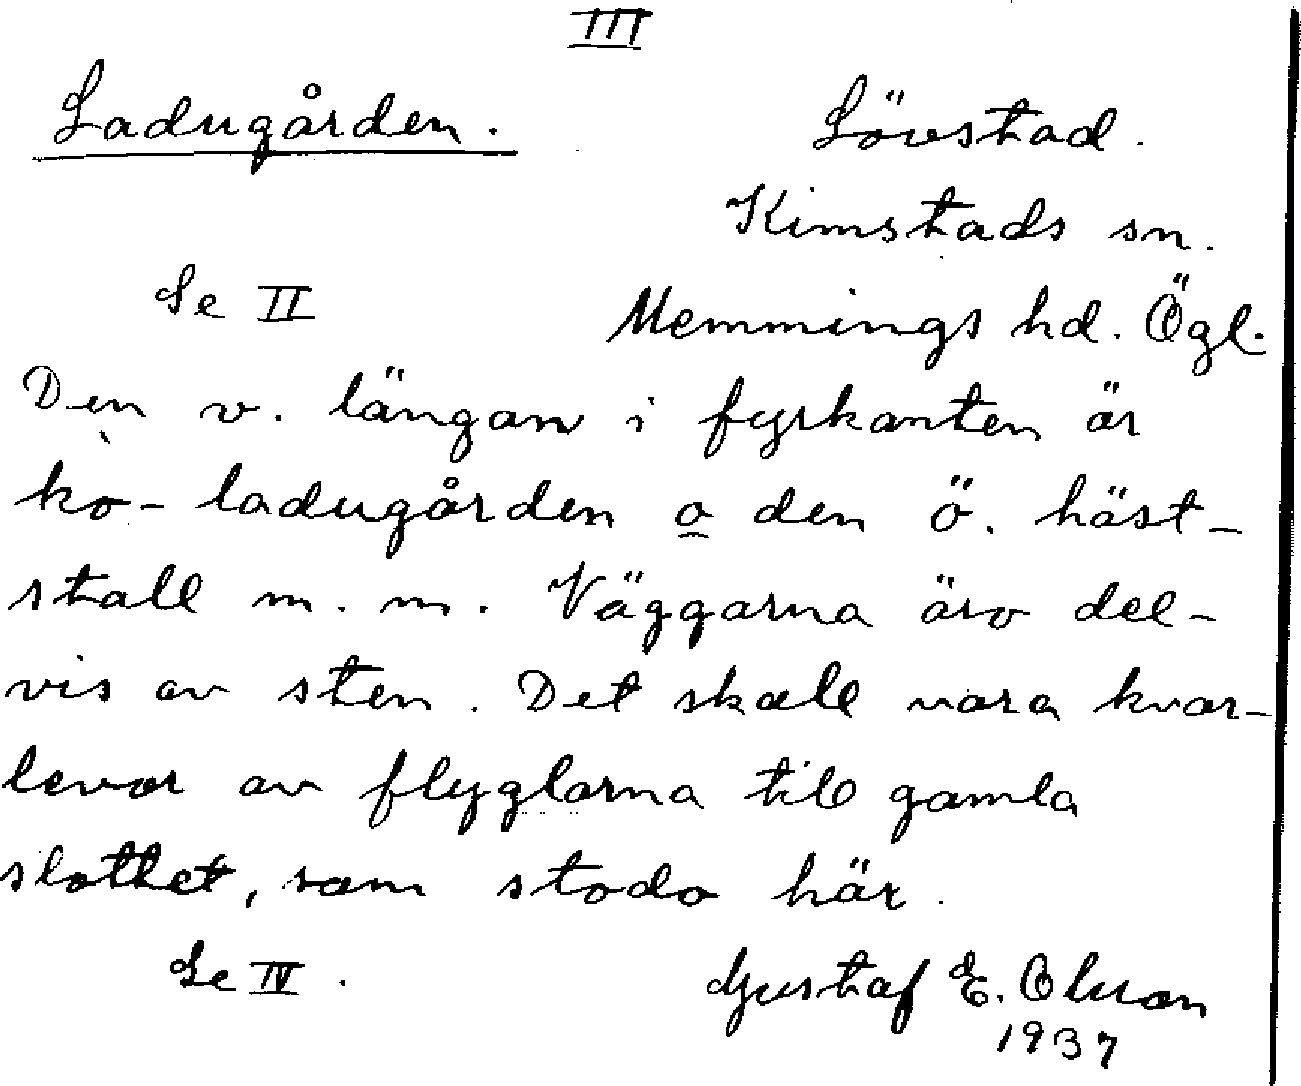 III
Ladugården.
Lövstad.
Kimstads sn.
Se II
Memmings hd. Ögl.
Den v. längan i fyrkanten är
ko-ladugården o den ö. häst-
stall m. m. Väggarna äro del-
vis av sten. Det skall vara kvar-
levor av flyglarna till gamla
slottet, som stodo här.
Se IV.
Gustaf E. Olsson
1937